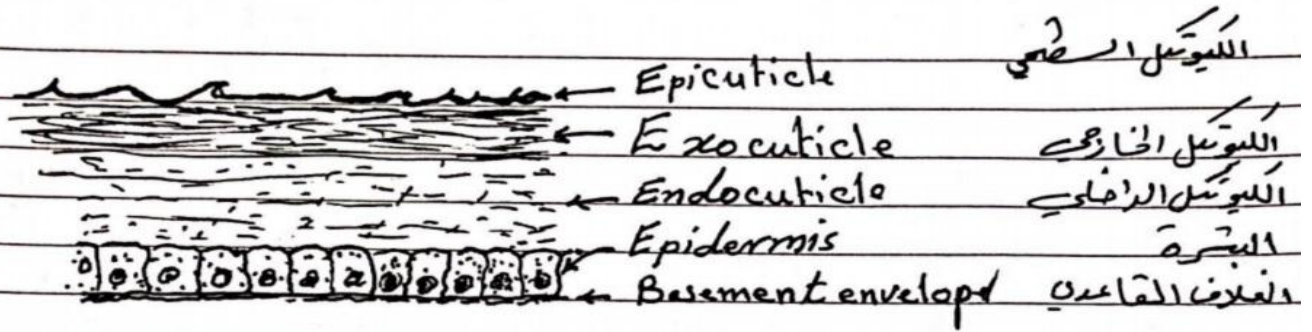 Epicuticle الكيوتكل السطحي
Exocuticle الكيوتكل الخارجي
Endocuticle الكيوتكل الداخلي
Epidermis البشرة
Basement envelopd الغلاف القاعدي